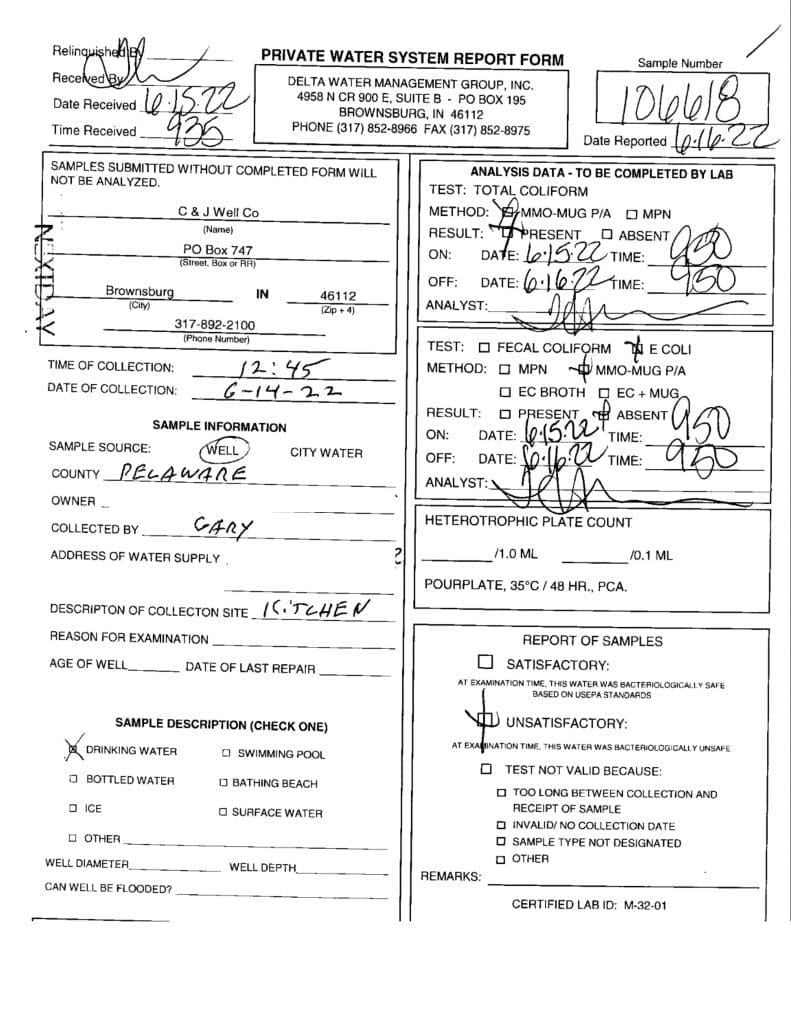 Relinquished By
Received By
Date Received 6·15·22
Time Received 935
PRIVATE WATER SYSTEM REPORT FORM
DELTA WATER MANAGEMENT GROUP, INC.
4958 N CR 900 E, SUITE B - PO BOX 195
BROWNSBURG, IN 46112
PHONE (317) 852-8966 FAX (317) 852-8975
Sample Number
106618
Date Reported 6·16·22
SAMPLES SUBMITTED WITHOUT COMPLETED FORM WILL
NOT BE ANALYZED.
C & J Well Co
(Name)
PO Box 747
(Street, Box or RR)
Brownsburg IN 46112
(City) (Zip + 4)
317-892-2100
(Phone Number)
TIME OF COLLECTION: 12:45
DATE OF COLLECTION: 6-14-22
SAMPLE INFORMATION
SAMPLE SOURCE: WELL CITY WATER
COUNTY DELAWARE
OWNER
COLLECTED BY GARY
ADDRESS OF WATER SUPPLY
DESCRIPTON OF COLLECTON SITE KITCHEN
REASON FOR EXAMINATION
AGE OF WELL DATE OF LAST REPAIR
SAMPLE DESCRIPTION (CHECK ONE)
DRINKING WATER SWIMMING POOL
BOTTLED WATER BATHING BEACH
ICE SURFACE WATER
OTHER
WELL DIAMETER WELL DEPTH
CAN WELL BE FLOODED?
ANALYSIS DATA - TO BE COMPLETED BY LAB
TEST: TOTAL COLIFORM
METHOD: MMO-MUG P/A MPN
RESULT: PRESENT ABSENT
ON: DATE: 6·15·22 TIME: 950
OFF: DATE: 6·16·22 TIME: 950
ANALYST:
TEST: FECAL COLIFORM E COLI
METHOD: MPN MMO-MUG P/A
EC BROTH EC + MUG
RESULT: PRESENT ABSENT
ON: DATE: 6·15·22 TIME: 950
OFF: DATE: 6·16·22 TIME: 950
ANALYST:
HETEROTROPHIC PLATE COUNT
/1.0 ML /0.1 ML
POURPLATE, 35°C / 48 HR., PCA.
REPORT OF SAMPLES
SATISFACTORY:
AT EXAMINATION TIME, THIS WATER WAS BACTERIOLOGICALLY SAFE
BASED ON USEPA STANDARDS
UNSATISFACTORY:
AT EXAMINATION TIME, THIS WATER WAS BACTERIOLOGICALLY UNSAFE
TEST NOT VALID BECAUSE:
TOO LONG BETWEEN COLLECTION AND
RECEIPT OF SAMPLE
INVALID/ NO COLLECTION DATE
SAMPLE TYPE NOT DESIGNATED
OTHER
REMARKS:
CERTIFIED LAB ID: M-32-01